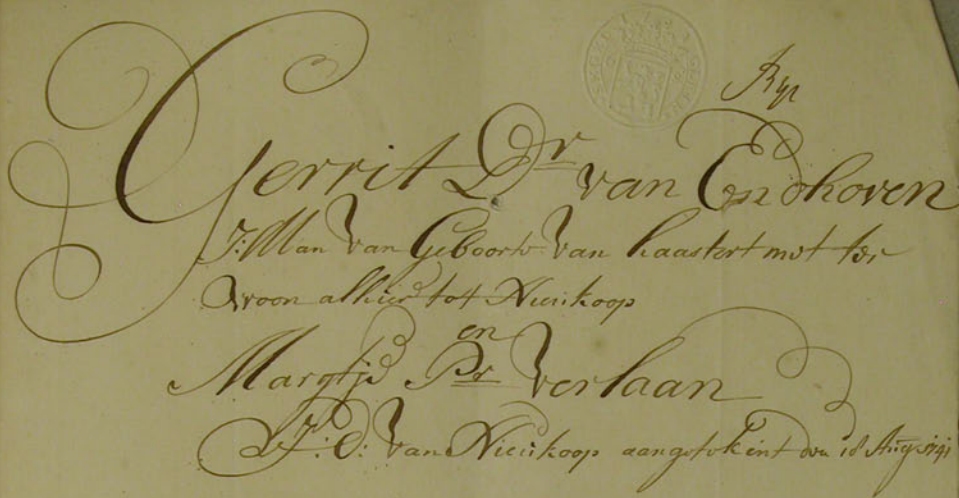 Gerrit Dr van Eÿndhoven
J: Man van Geboorte van haastert met ter
woon alhier tot Nieukoop
en
Margtje Pr Verlaan
J: D: van Nieukoop aangetekent den 18 Aug